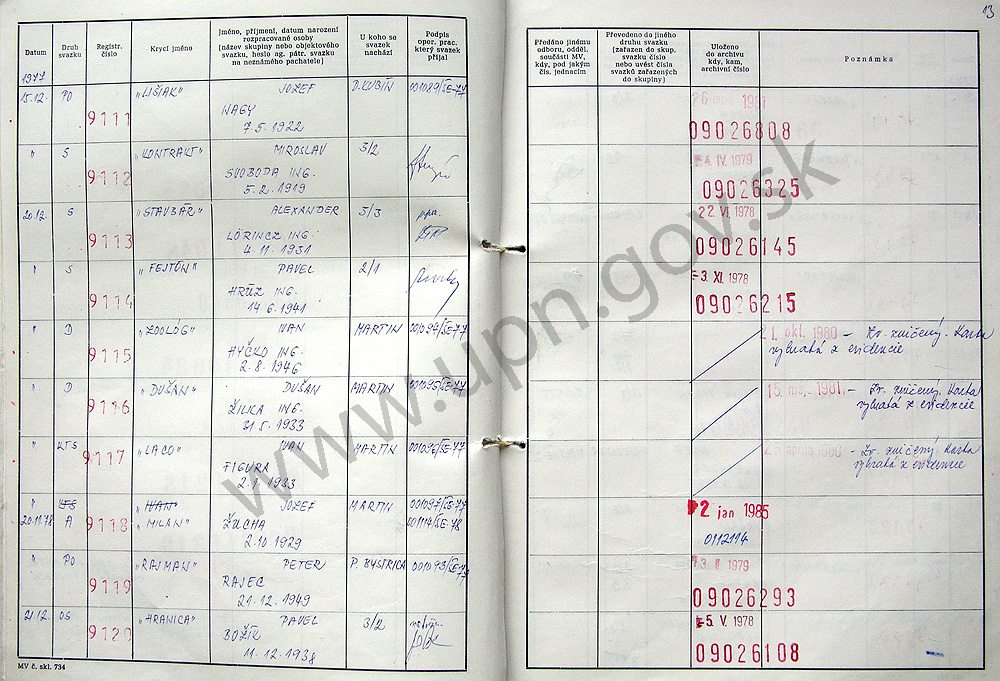 13
Datum
Druh svazku
Registr. číslo
Krycí jméno
Jméno, příjmení, datum narození rozpracované osoby (název skupiny nebo objektového svazku, heslo ag. pátr. svazku na neznámého pachatele)
U koho se svazek nachází
Podpis oper. prac. který svazek přijal
Předáno jinému odboru, odděl. součásti MV, kdy, pod jakým čís. jednacím
Převedeno do jiného druhu svazku (zařazen do skup. svazku číslo nebo uvést čísla svazků zařazených do skupiny)
Uloženo do archivu kdy, kam, archivní číslo
Poznámka
1977
15.12. PO 9111 "LIŠIAK" JOZEF D.KUBÍN 001089/SE-77
NAGY
7.5.1922
09026808
" S 9112 "KONTRAKT" MIROSLAV 3/2
SVOBODA ING.
5.2.1919
4. IV. 1979
09026325
20.12. S 9113 "STAVBÁR" ALEXANDER 5/3
LÖRINCZ ING.
4.11.1931
22 VI. 1978
09026145
" S 9114 "FEJTÓN" PAVEL 2/1
HRŮZ ING.
14.6.1941
-3. XI. 1978
09026215
" D 9115 "ZOOLÓG" IVAN MARTIN 001094/SE-77
HYČKO ING.
2.8.1946
21. okt. 1980 - Zv. zničený. Karta
vybratá z evidencie
" D 9116 "DUŠAN" DUŠAN MARTIN 001095/SE-77
ŽILKA ING.
31.5.1933
15. máj 1981. - Zv. zničený. Karta
vybratá z evidencie
" KTS 9117 "LACO" IVAN MARTIN 001096/SE-77
FIGURA
2.1.1933
1980 - Zv. zničený. Karta
vybratá z evidencie
" KTS 9118 "IVAN" JOZEF MARTIN 001097/SE-77
20.11.78 A "MILAN" ŽUCHA 001114/SE-78
2.10.1929
2 jan 1985
0112114
" PO 9119 "RAJMAN" PETER P. BYSTRICA 001093/SE-77
RAJEC
21.12.1949
13. II 1979
09026293
21.12. OS 9120 "HRANICA" PAVEL 3/2
BOŽÍK
11.12.1938
-5. V. 1978
09026108
MV č. skl. 734
www.upn.gov.sk